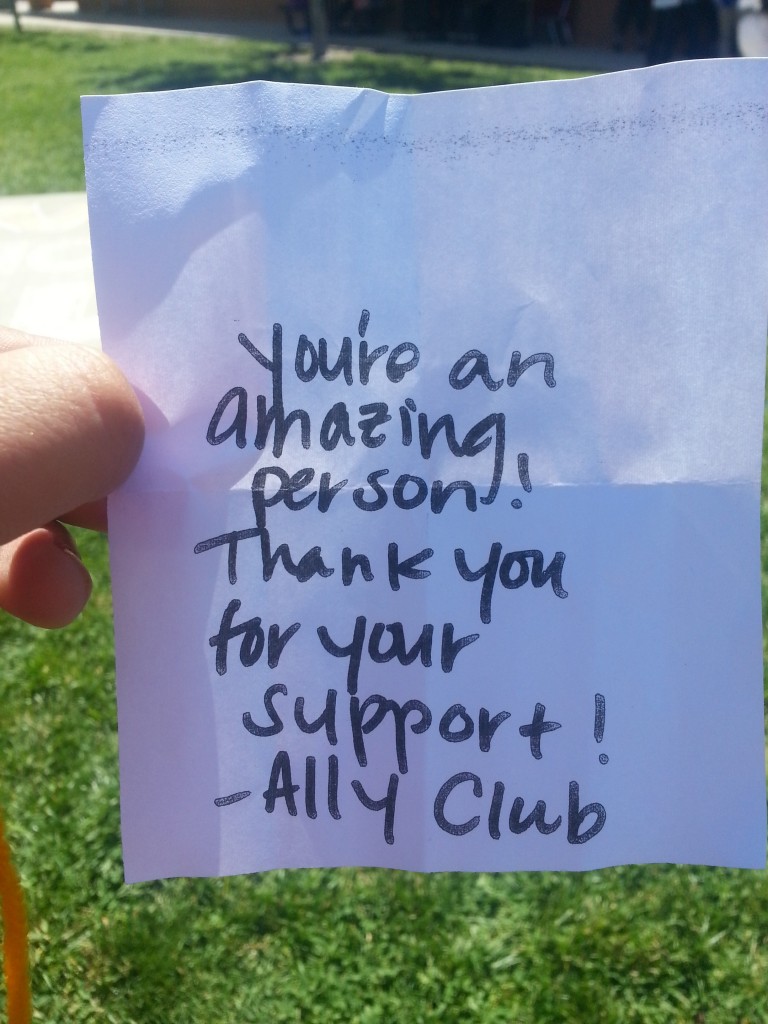 You're an
amazing
person!
Thank you
for your
support!
-Ally Club